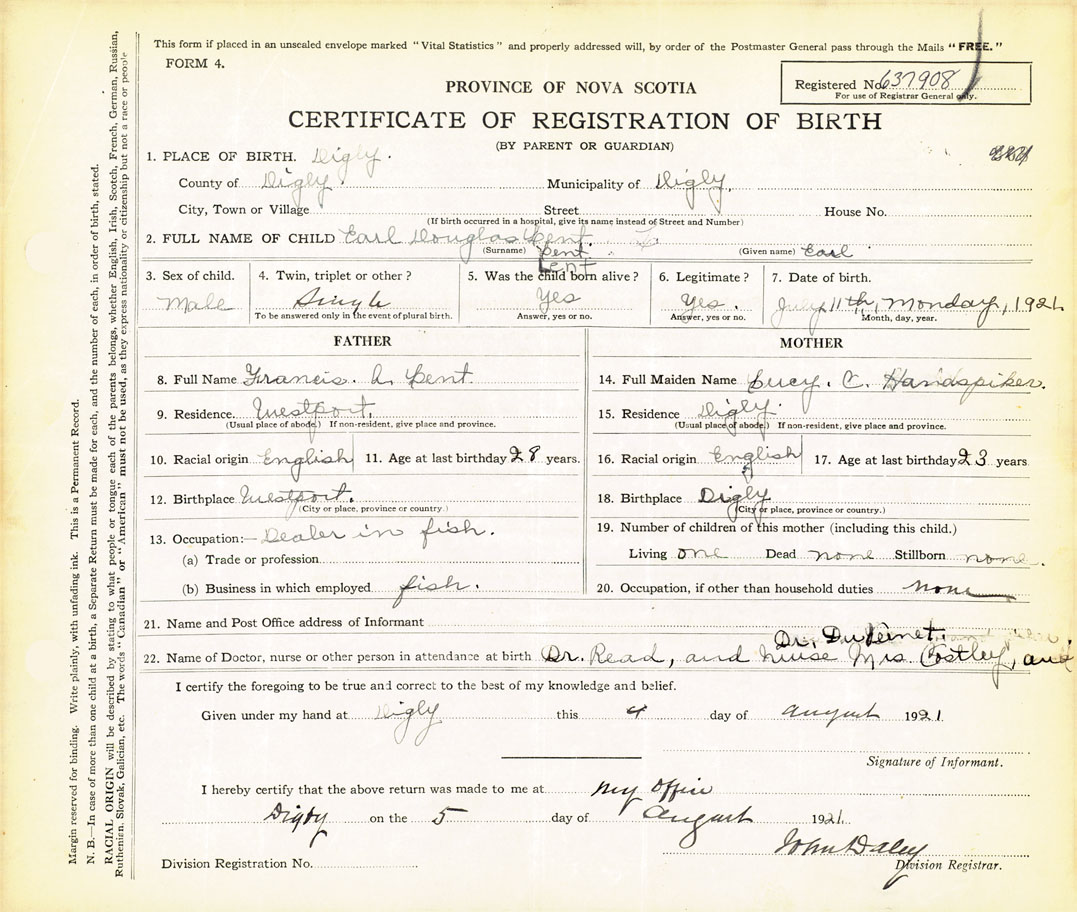 This form if placed in an unscaled envelope marked "Vital Statistics" and properly addressed will, by order of the Postmaster General pass through the Mails "FREE."
FORM 4.
Registered No. 637908
For use of Registrar General only.
PROVINCE OF NOVA SCOTIA
CERTIFICATE OF REGISTRATION OF BIRTH
(BY PARENT OR GUARDIAN)
1. PLACE OF BIRTH. Digby.
County of Digby. Municipality of Digby,
City, Town or Village Street House No.
(If birth occurred in a hospital, give its name instead of Street and Number)
2. FULL NAME OF CHILD Earl Douglas Pent.
(Surname) Pent. (Given name) Earl
Pent
3. Sex of child. 4. Twin, triplet or other? 5. Was the child born alive? 6. Legitimate? 7. Date of birth.
Male Single Yes Yes. July 11th, Monday, 1921
To be answered only in the event of plural birth. Answer, yes or no. Answer, yes or no. Month, day, year.
FATHER
8. Full Name Francis. A. Pent.
9. Residence. Westport.
(Usual place of abode.) If non-resident, give place and province.
10. Racial origin English 11. Age at last birthday 28 years.
12. Birthplace Westport.
(City or place, province or country.)
13. Occupation:— Dealer in fish.
(a) Trade or profession
(b) Business in which employed fish.
MOTHER
14. Full Maiden Name Lucy. C. Handspiker.
15. Residence Digby.
(Usual place of abode.) If non-resident, give place and province.
16. Racial origin English 17. Age at last birthday 23 years
18. Birthplace Digby
(City or place, province or country.)
19. Number of children of this mother (including this child.)
Living one Dead none Stillborn none.
20. Occupation, if other than household duties none
21. Name and Post Office address of Informant
Dr. DuVernet.
22. Name of Doctor, nurse or other person in attendance at birth Dr. Read, and Nurse Mrs Costley, and
I certify the foregoing to be true and correct to the best of my knowledge and belief.
Given under my hand at Digby this 4 day of August 1921.
Signature of Informant.
I hereby certify that the above return was made to me at my office
Digby on the 5 day of August 1921.
John Daley
Division Registration No. Division Registrar.
Margin reserved for binding. Write plainly, with unfading ink. This is a Permanent Record.
N. B.—In case of more than one child at a birth, a Separate Return must be made for each, and the number of each, in order of birth, stated.
RACIAL ORIGIN will be described by stating to what people or tongue each of the parents belongs, whether English, Irish, Scotch, French, German, Russian,
Ruthenien, Slovak, Galician, etc. The words "Canadian" or "American" must not be used, as they express nationality or citizenship but not a race or people